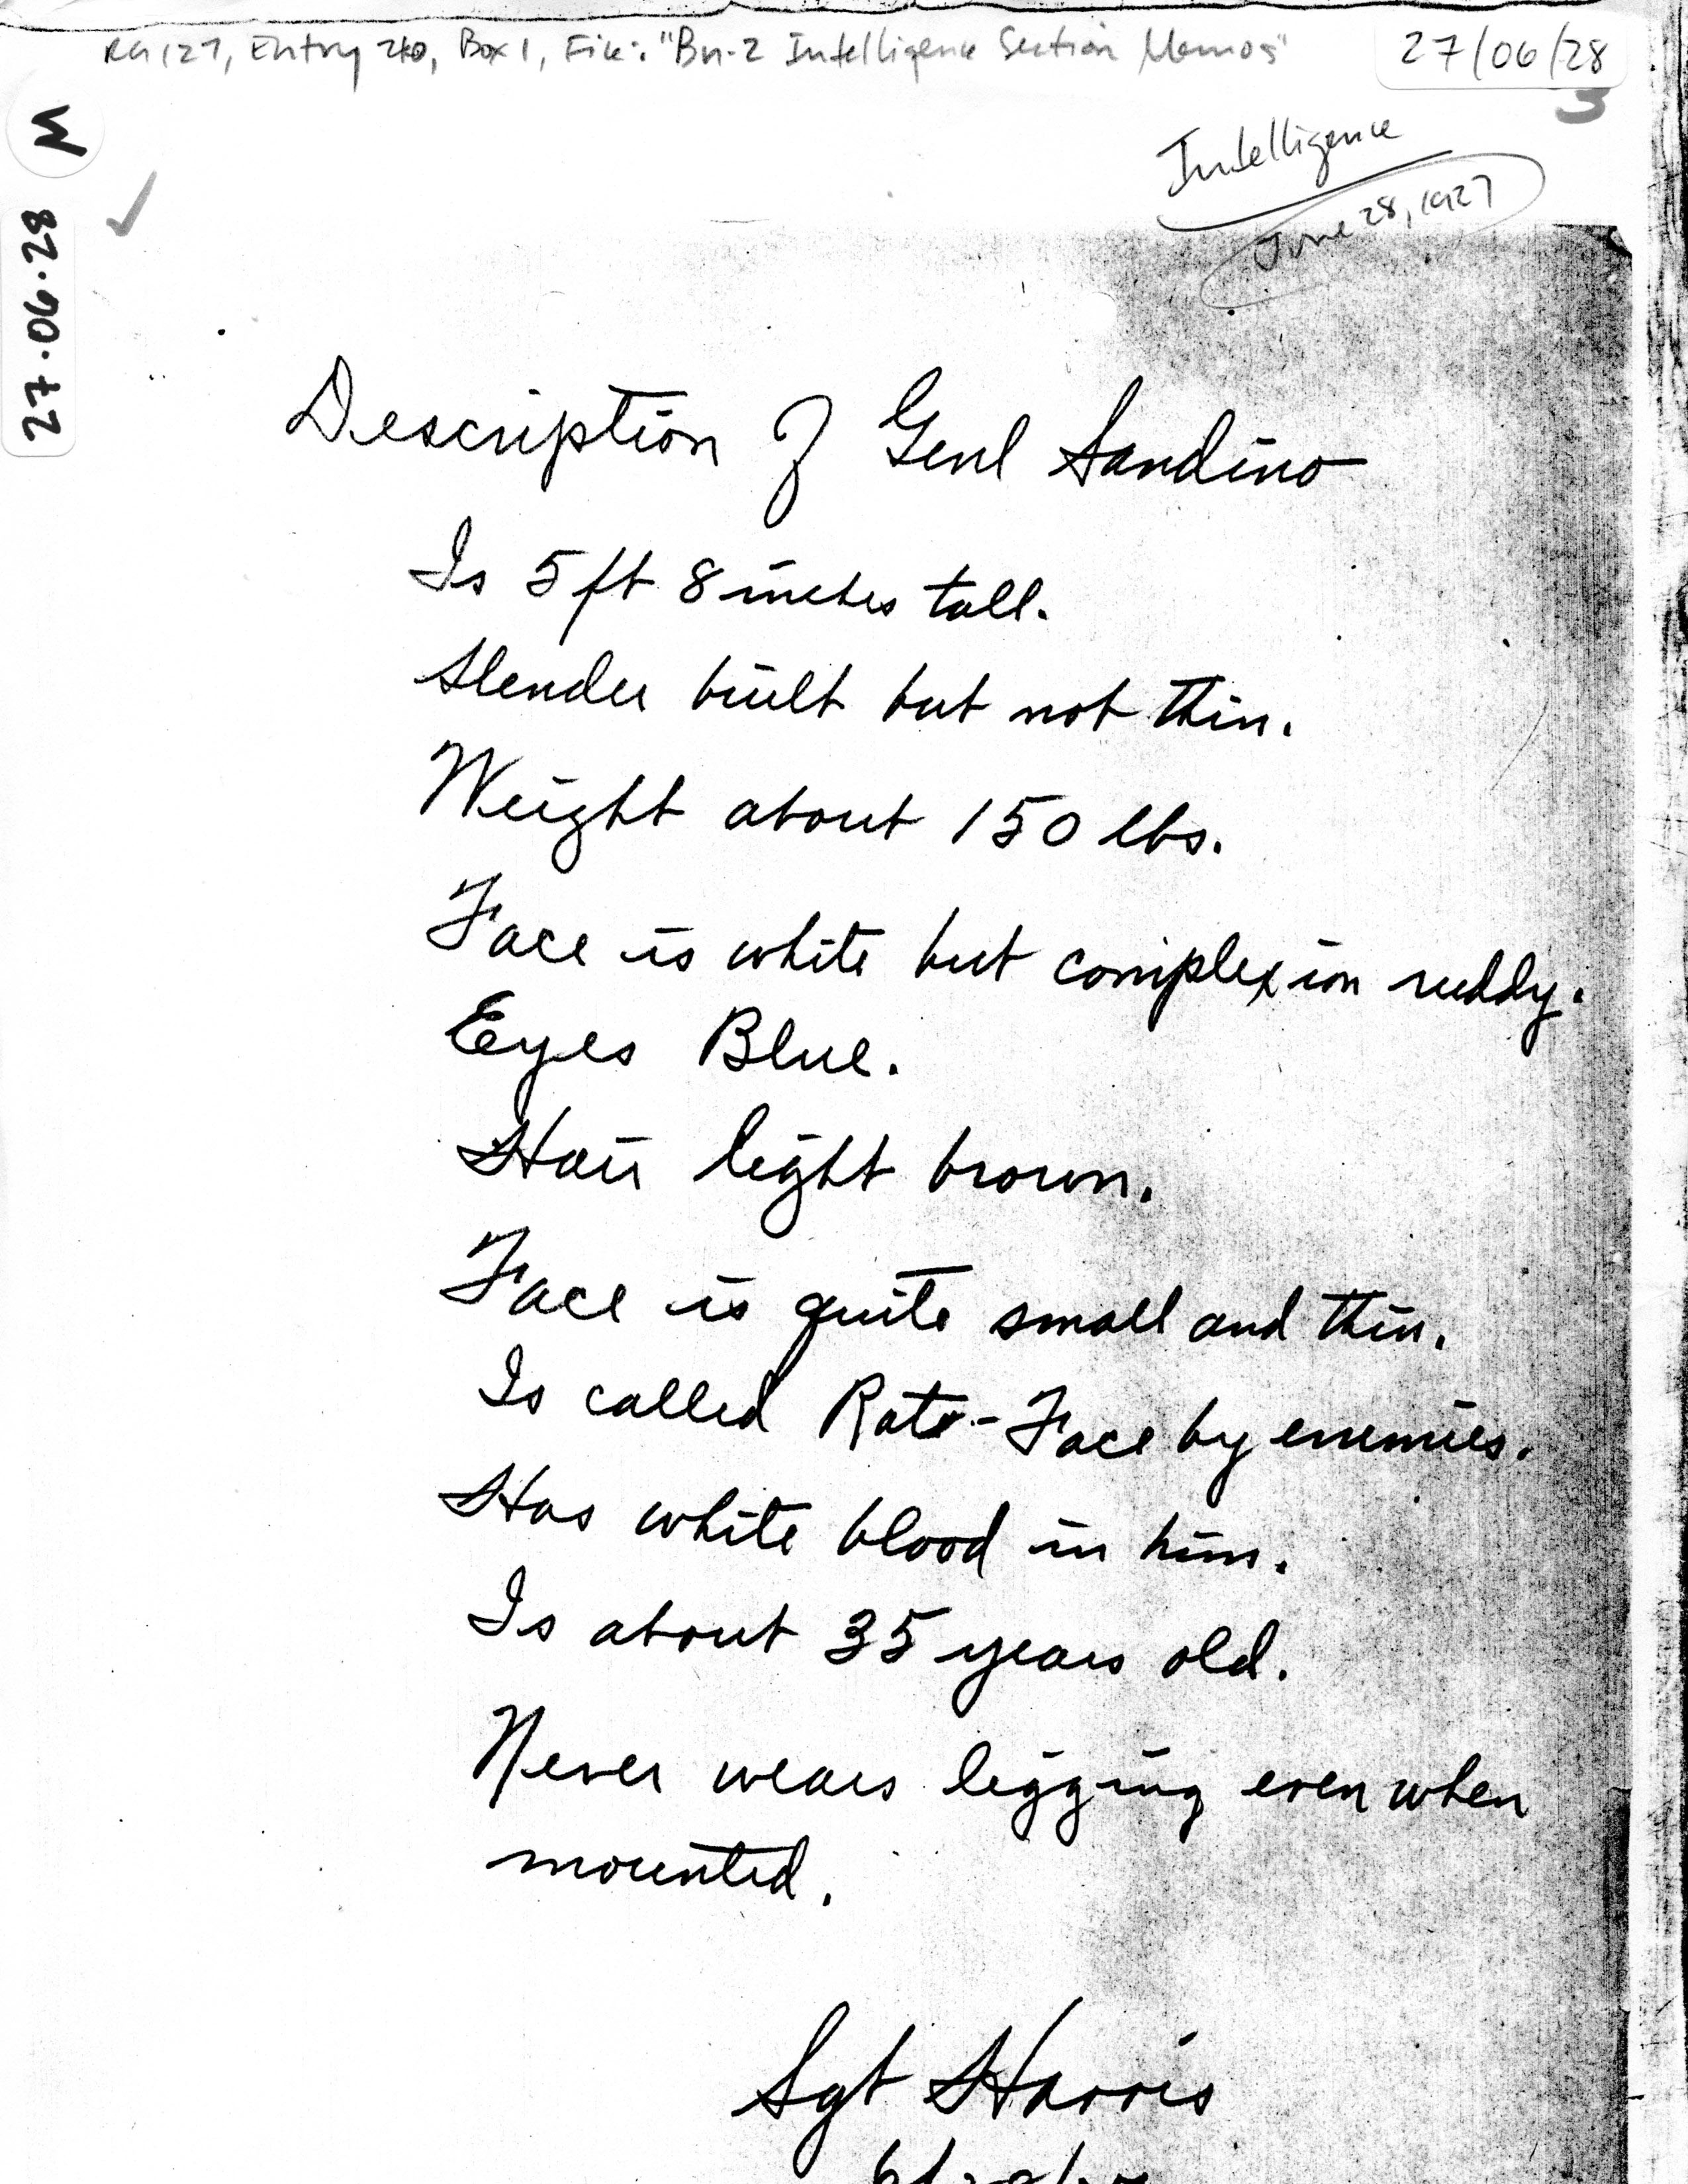 RG 127, Entry 220, Box 1, File: "Bn-2 Intelligence Section Memos"
27/06/28
3
M
27.06.28
Intelligence
June 28, 1927
Description of Genl Sandino
Is 5 ft 8 inches tall.
Slender built but not thin.
Weight about 150 lbs.
Face is white but complexion ruddy.
Eyes Blue.
Hair light brown.
Face is quite small and thin.
Is called Rat-Face by enemies.
Has white blood in him.
Is about 35 years old.
Never wears legging even when
mounted.
Sgt Harris